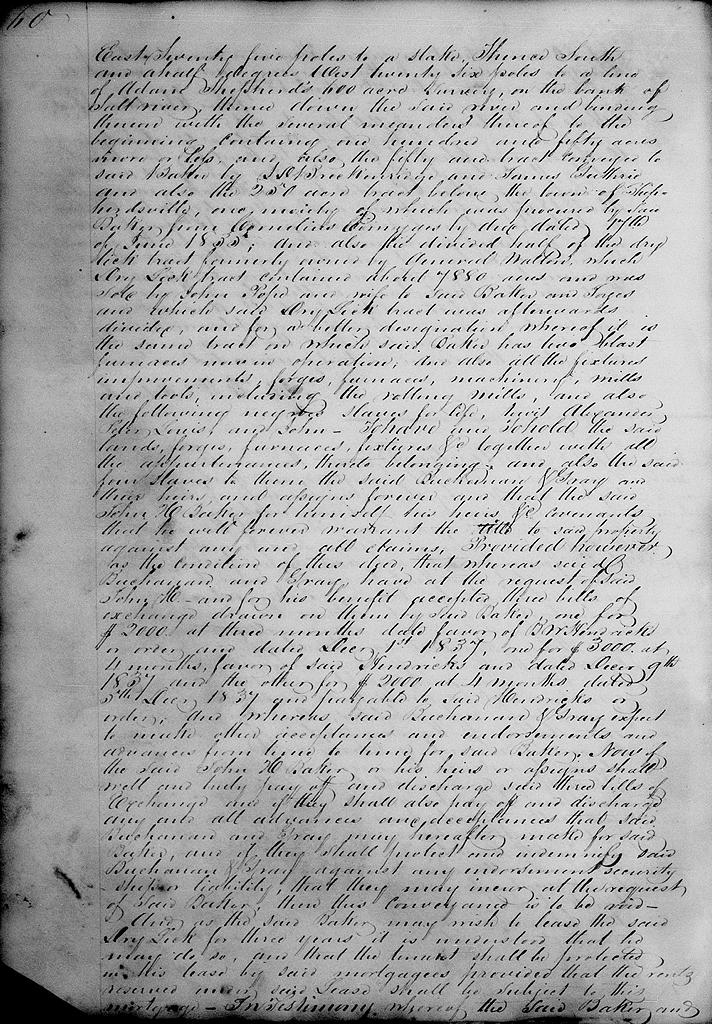 60
East Twenty five poles to a stake, Thence South
and a half degrees West twenty six poles to a line
of Adam Shepherd's 600 acre Survey, on the bank of
Salt river, thence down the said river and binding
thereon with the several meanders thereof to the
beginning, containing one hundred and fifty acres
more or less, and also the fifty acre tract conveyed to
said Baker by Breckenridge and James Guthrie
and also the 250 acre tract below the town of Shep-
herdsville, one moiety of which was procured by said
Baker from Cornelius by deed dated 17th
of June 1835; and also the divided half of the dry
lick tract formerly owned by General Walton, which
Dry Lick tract contained about 7880 acres and was
sold by John Pope and wife to said Baker and
and which said Dry Lick tract was afterwards
divided, and for a better designation whereof it is
the same tract on which said Baker has two blast
furnaces now in operation; and also all the fixtures
improvements, forges, furnaces, machinery, mills
and tools, including the rolling mills, and also
the following negroes slaves for life, towit Alexander,
Peter, Louis, and John - To have and to hold the said
lands, forges, furnaces, fixtures &c together with all
the appurtenances, thereto belonging; and also the said
four slaves to them the said Buchanan & Gray and
their heirs, and assigns forever and that the said
John H Baker for himself his heirs, &c covenants
that he will forever warrant the title to said property
against any and all claims, Provided however
as the condition of this deed, that whereas said
Buchanan and Gray have at the request of said
John H - and for his benefit accepted three bills of
exchange drawn on them by said Baker, one for
$2000. at three months date favor of B W Hendricks
or order, and dated Decr. 1st 1837, one for $3000. at
4 months, favor of said Hendricks and dated Decer 9th
1837 and the other for $2000 at 4 months dated
5th Dec 1837 and payable to said Hendricks or
order; And whereas said Buchanan & Gray expect
to make other acceptances and endorsements and
advances from time to time for said Baker. Now if
the said John H Baker, or his heirs or assigns shall
well and truly pay off and discharge said three bills of
Exchange and if they shall also pay off and discharge
any and all advances and acceptances that said
Buchanan and Gray may hereafter make for said
Baker, and if they shall protect and indemnify said
Buchanan & Gray against any endorsement, security
-ship or liability, that they may incur at the request
of said Baker, then this conveyance is to be void -
And as the said Baker may wish to lease the said
Dry Lick for three years it is understood that he
may do so, and that the tenant shall be protected
in his lease by said mortgagees provided that the rents
reserved under said lease shall be subject to this
mortgage - In Testimony whereof the said Baker and